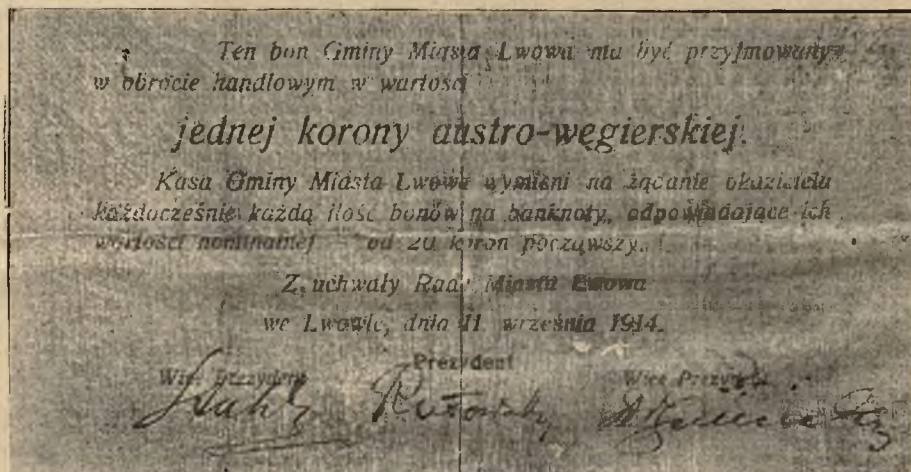 Ten bon Gminy Miasta Lwowa ma być przyjmowany
w obrocie handlowym w wartości
jednej korony austro-węgierskiej.
Kasa Gminy Miasta Lwowa wymieni na żądanie okaziciela
każdocześnie każdą ilość bonów na banknoty, odpowiadające ich
wartości nominalnej — od 20 koron począwszy.
Z uchwały Rady Miasta Lwowa
we Lwowie, dnia 11 września 1914.
Wice Prezydent Prezydent Wice Prezydent
Rutowski